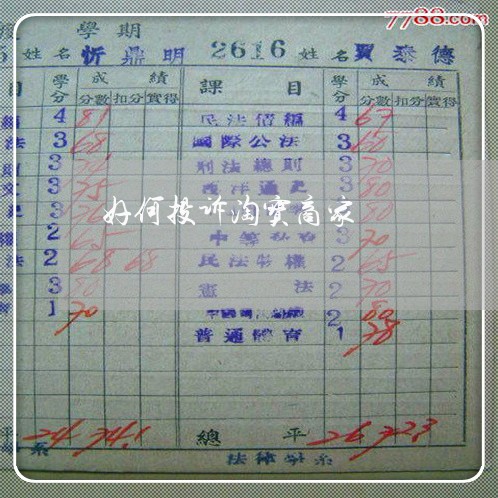 7788.com
學期
5 姓名 忻鼎明 2616 姓名 賈泰德
目 學分 成績 課目 學分 成績
分數 扣分 實得 分數 扣分 實得
4 81 民法債編 4 67
法 3 68 國際公法 3 60
3 刑法總則 3 70
3 75 西洋通史 3 80
3
好何投诉淘宝商家
2 65 3 70
法 2 68 68 民法物權 2 65
3 80 憲法 2 70
1 70 2 80
普通體育 1 78
平 24 74.1 總平 26 72.3
系 法律學系